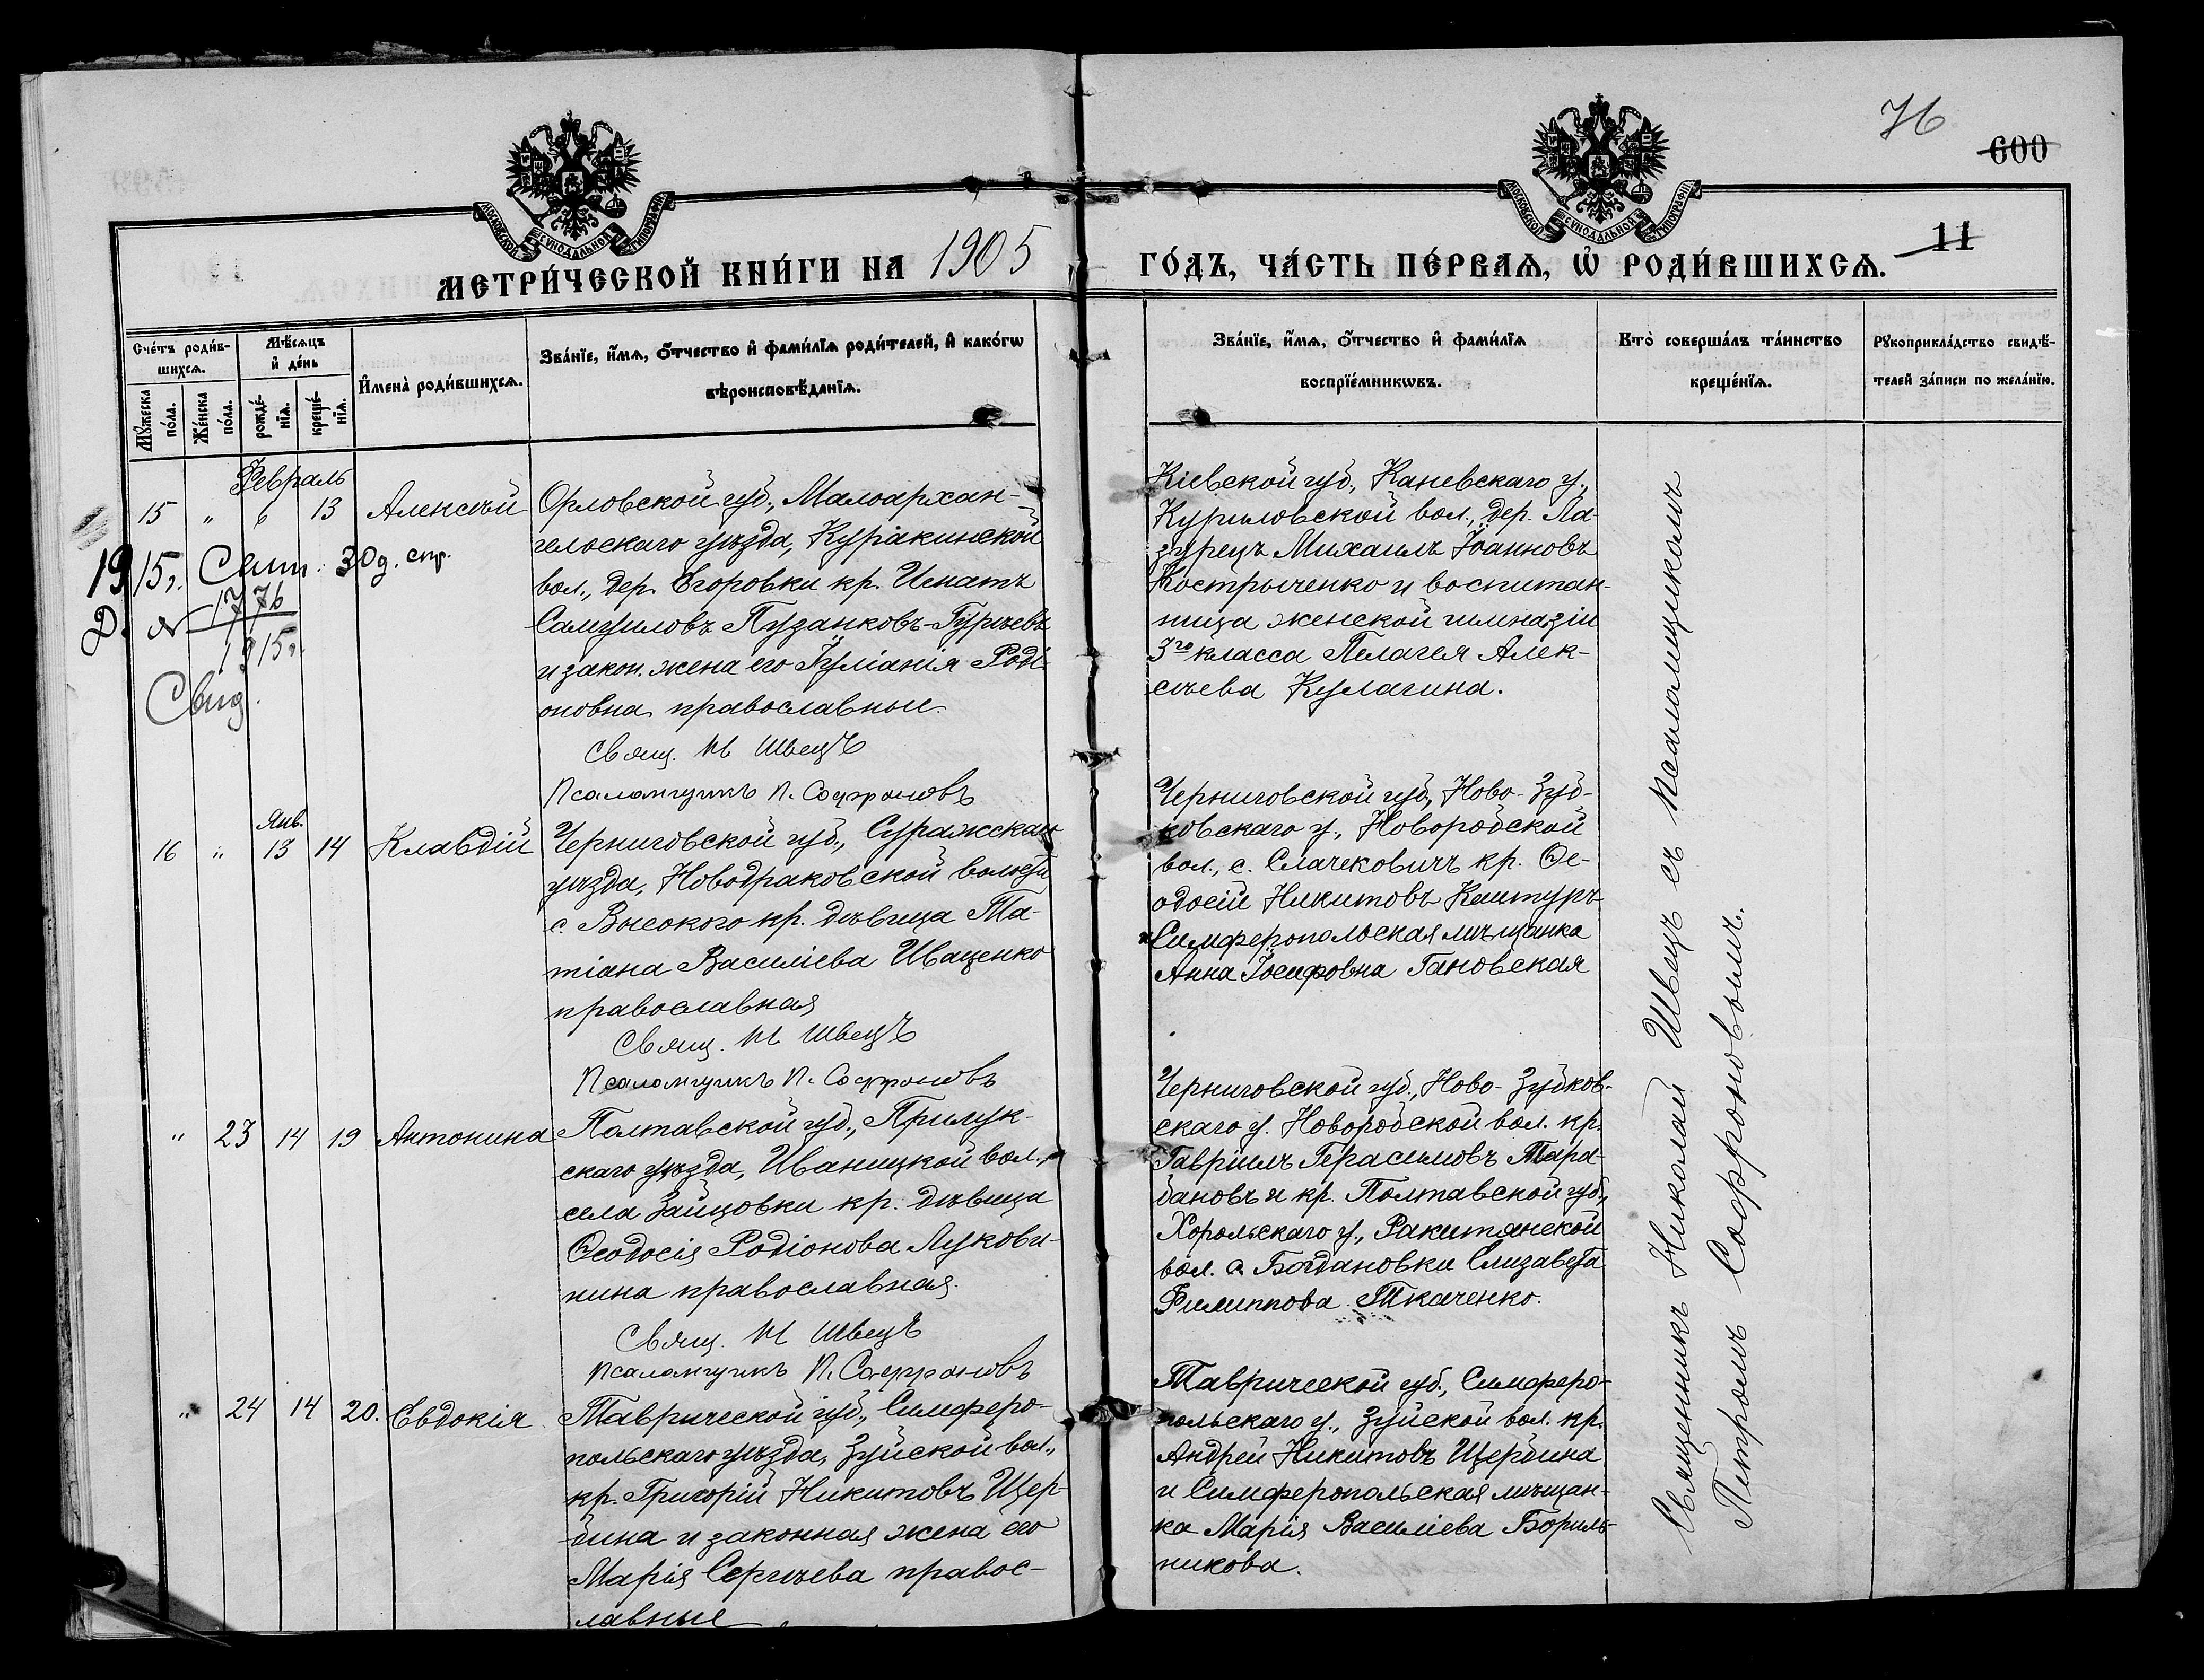 76
600
МОСКОВСКОЙ СѴНОДАЛЬНОЙ ТИПОГРАФІИ
МОСКОВСКОЙ СѴНОДАЛЬНОЙ ТИПОГРАФІИ
11
МЕТРИ́ЧЕСКОЙ КНИ́ГИ НА 1905
ГО́ДЪ, ЧА́СТЬ ПЕ́РВАѦ, Ѡ҆ РОДИ́ВШИХСѦ.
Сче́тъ роди́в-
шихсѧ.
Мꙋ́жеска по́ла.
Же́нска по́ла.
Мѣ́сѧцъ и҆ де́нь
рожде́-нїѧ.
креще́-нїѧ.
И҆мена̀ роди́вшихсѧ.
Зва́нїе, и҆́мѧ, ѻ҆́тчество и҆ фами́лїѧ роди́телей, и҆ како́гѡ
вѣроисповѣ́данїѧ.
Зва́нїе, и҆́мѧ, ѻ҆́тчество и҆ фами́лїѧ
воспрїе́мникѡвъ.
Кто̀ соверша́лъ та́инство
креще́нїѧ.
Рꙋкоприкла́дство свидѣ́-
телей за́писи по жела́нїю.
Февраль
15 " 6 13 Алексѣй
Орловской губ., Малоархан-
гельскаго уѣзда, Куракинской
вол., дер. Егоровки кр. Игнатъ
Самуиловъ Пузанковъ-Гурьевъ
и закон. жена его Іуліанія Роді-
оновна, православные.
Свящ. Н Швецъ
Псаломщикъ П. Софроновъ
1915 г. Сент. 30 д. спр.
Д. № 1776
1915 г.
Свид.
Кіевской губ., Каневскаго у.,
Куриловской вол., дер. Ла-
зурецъ Михаилъ Іоанновъ
Костырченко и воспитан-
ница женской гимназіи
3го класса Пелагея Алек-
сѣева Кулагина.
Янв.
16 " 13 14 Клавдій
Черниговской губ., Суражскаго
уѣзда, Новодраковской волости
с. Высокого кр. дѣвица Та-
тіана Василіева Иваценко
православная
Свящ. Н Швецъ
Псаломщикъ П. Софроновъ
Черниговской губ., Ново-Зуб-
ковскаго у., Новоробской
вол., с. Слачековичъ кр. Ѳе-
одосій Никитовъ Каштуръ
и Симферопольская мѣщанка
Анна Іосифовна Гановская
" 23 14 19 Антонина
Полтавской губ., Прилук-
скаго уѣзда, Иваницкой вол.,
села Зайцовки кр. дѣвица
Ѳеодосія Родіонова Лукови-
нина православная.
Свящ. Н Швецъ
Псаломщикъ П. Софроновъ
Черниговской губ., Ново-Зубков-
скаго у. Новоробской вол. кр.
Гавріилъ Герасимовъ Тара-
бановъ и кр. Полтавской губ.,
Хорольскаго у., Ракитянской
вол. с. Богдановки Елизавета
Филиппова Ткаченко.
" 24 14 20. Евдокія
Таврической губ., Симферо-
польскаго уѣзда, Зуйской вол.,
кр. Григорій Никитовъ Щер-
бина и законная жена его
Марія Сергѣева правос-
лавные
Таврической губ., Симферо-
польскаго у., Зуйской вол. кр.
Андрей Никитовъ Щербина
и Симферопольская мѣщан-
ка Марія Василіева Бориль-
никова.
Священникъ Николай Швецъ съ псаломщикомъ
Петромъ Софроновымъ.